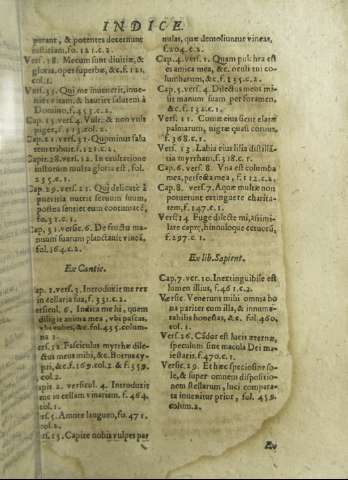 INDICE
perant, & potentes decernunt
iustitiam, fo. 121. c. 2.
Vers. 18. Mecum sunt diuitiæ, &
gloria, opes superbæ, &c. f. 121.
col. 1.
Vers. 35. Qui me inuenerit, inue-
niet vitam, & hauriet salutem à
Domino, f. 453. c. 2.
Cap. 13. vers. 4. Vult, & non vult
piger, f. 113.
col. 2.
Cap. 21. vers. 31. Dominus salu
tem tribuit. f. 121. c. 2.
Capit. 28. vers. 12. In exultatione
iustorum multa gloria est, fol.
255. c. 1.
Cap. 29. vers. 21. Qui delicatè à
pueritia nutrit seruum suum,
postea sentiet eum contumacẽ,
fo. 31. c. 1.
Cap. 31. verse. 6. De fructu ma-
nuum suarum plantauit vineã,
fol. 164. c. 2.
Ex Cantic.
Cap. 2. vers. 3. Introduxit me rex
in cellaria sua, f. 331. c. 2.
Versicul. 6. Indica mihi, quem
diligit anima mea, vbi pascas,
vbi cubes, &c. fol. 455. colum-
na 1.
Vers. 12. Fasciculus myrrhæ dile-
ctus meus mihi, &c. Botrus cy-
pri, &c. f. 169. col. 2. & f. 359.
col. 2.
Capit. 2. versicul. 4. Introduxit
me in cellam vinariam. f. 464.
col. 1.
Vers. 5. Amore langueo, fo. 471.
col. 2.
Vers. 15. Capite nobis vulpes par
uulas, quæ demoliuntur vineas,
f. 204. c. 2.
Cap. 4. vers. 1. Quam pulchra est
es amica mea, &c. oculi tui co-
lumbarum, &c. f. 155. c. 2.
Cap. 5. vers. 4. Dilectus meus mi-
sit manum suam per foramen,
&c. f. 132. c. 1.
Vers. 11. Comæ eius sicut elatæ
palmarum, nigræ quasi coruus,
f. 368. c. 1.
Vers. 13. Labia eius lilia distillã-
tia myrrham, f. 318. c. 1.
Cap. 6. vers. 8. Vna est columba
mea, perfecta mea, f. 112. c. 2.
Cap. 8. vers. 7. Aquæ multæ non
potuerunt extinguere charita-
tem, f. 147. c. 1.
Vers. 14. Fuge dilecte mi, assimi-
lare capreæ, hinnuloque ceruorũ,
f. 297. c. 1.
Ex lib. Sapient.
Cap. 7. ver. 10. Inextinguibile est
lumen illius, f. 461. c. 2.
Verse. Venerunt mihi omnia bo
na pariter cum illa, & innume-
rabilis honestas, &c. fol. 460.
col. 1.
Vers. 26. Cãdor est lucis æternæ,
speculum sine macula Dei ma-
iestatis. f. 470. c. 1.
Verse. 29. Et hæc speciosior so-
le, & super omnem dispositio-
nem stellarum, luci compara-
ta inuenitur prior, fol. 459.
colum. 2.